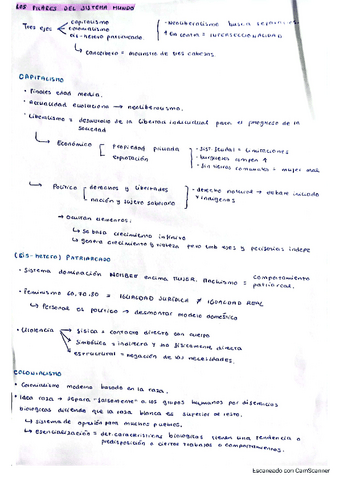 LOS PILARES DEL SISTEMA MUNDO
Tres ejes
capitalismo
colonialismo
cis-hetero patriarcado
• Neoliberalismo busca
En contra = INTERSECCIONALIDAD
↳ cancerbero = monstruo de tres cabezas
CAPITALISMO
• Finales edad media.
• Actualidad evoluciona → neoliberalismo.
• Liberalismo = desarrollo de la libertad individual para el progreso de la sociedad
↳ Económico
Propiedad privada
explotación
• sist feudal = limitaciones
• burgueses rompen
• sin tierras comunales = mujer
↳ Político
derechos y libertades
nación y sujeto soberano
• derecho natural → debate
indígenas
→ Ocultan elementos:
↳ Se basa crecimiento infinito
↳ genera crecimiento y riqueza pero y periferias
(CIS-HETERO) PATRIARCADO
• Sistema dominación HOMBRE encima MUJER. Machismo = comportamiento patriarcal.
• Feminismo 60,70,80 = IGUALDAD JURÍDICA ≠ IGUALDAD REAL
↳ Personal es político → desmontar modelo doméstico
• Violencia
física = contacto directo con cuerpo
simbólica = indirecta y no físicamente directa
estructural = negación de las necesidades.
COLONIALISMO
• Colonialismo moderno basado en la raza.
• Idea raza → separa "falsamente" a los grupos humanos por diferencias
biológicas diciendo que la raza blanca es superior al resto.
↳ sistema de opresión para muchos pueblos.
↳ Esencialización = det. características biológicas tienen una tendencia o
predisposición a ciertos trabajos o comportamientos.
Escaneado con CamScanner